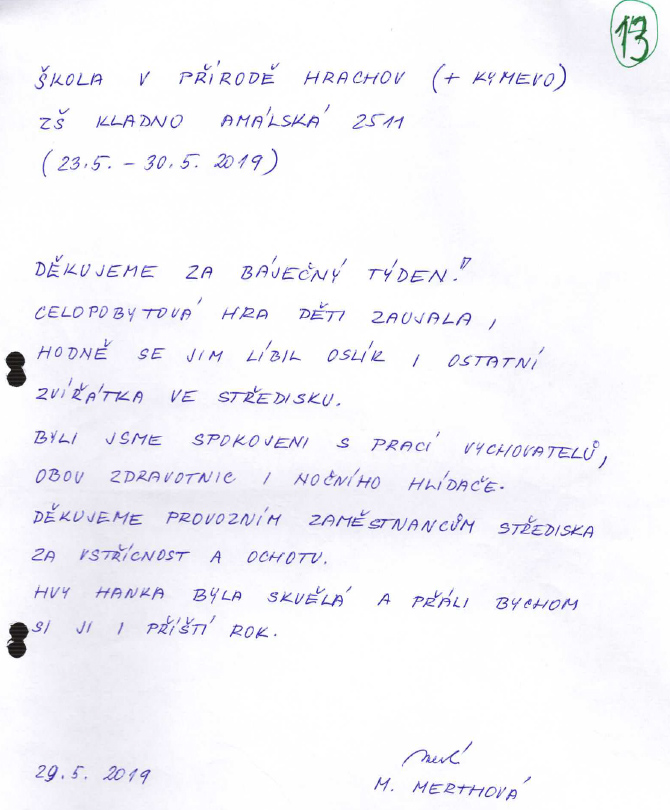 13
ŠKOLA V PŘÍRODĚ HRACHOV (+ KYMEVO)
ZŠ KLADNO AMÁLSKÁ 2511
(23.5. – 30.5. 2019)
DĚKUJEME ZA BÁJEČNÝ TÝDEN!
CELOPOBYTOVÁ HRA DĚTI ZAUJALA,
HODNĚ SE JIM LÍBIL OSLÍK I OSTATNÍ
ZVÍŘÁTKA VE STŘEDISKU.
BYLI JSME SPOKOJENI S PRACÍ VYCHOVATELŮ,
OBOU ZDRAVOTNIC I NOČNÍHO HLÍDAČE.
DĚKUJEME PROVOZNÍM ZAMĚSTNANCŮM STŘEDISKA
ZA VSTŘÍCNOST A OCHOTU.
HVY HANKA BYLA SKVĚLÁ A PŘÁLI BYCHOM
SI JI I PŘÍŠTÍ ROK.
29.5. 2019
M. MERTHOVÁ